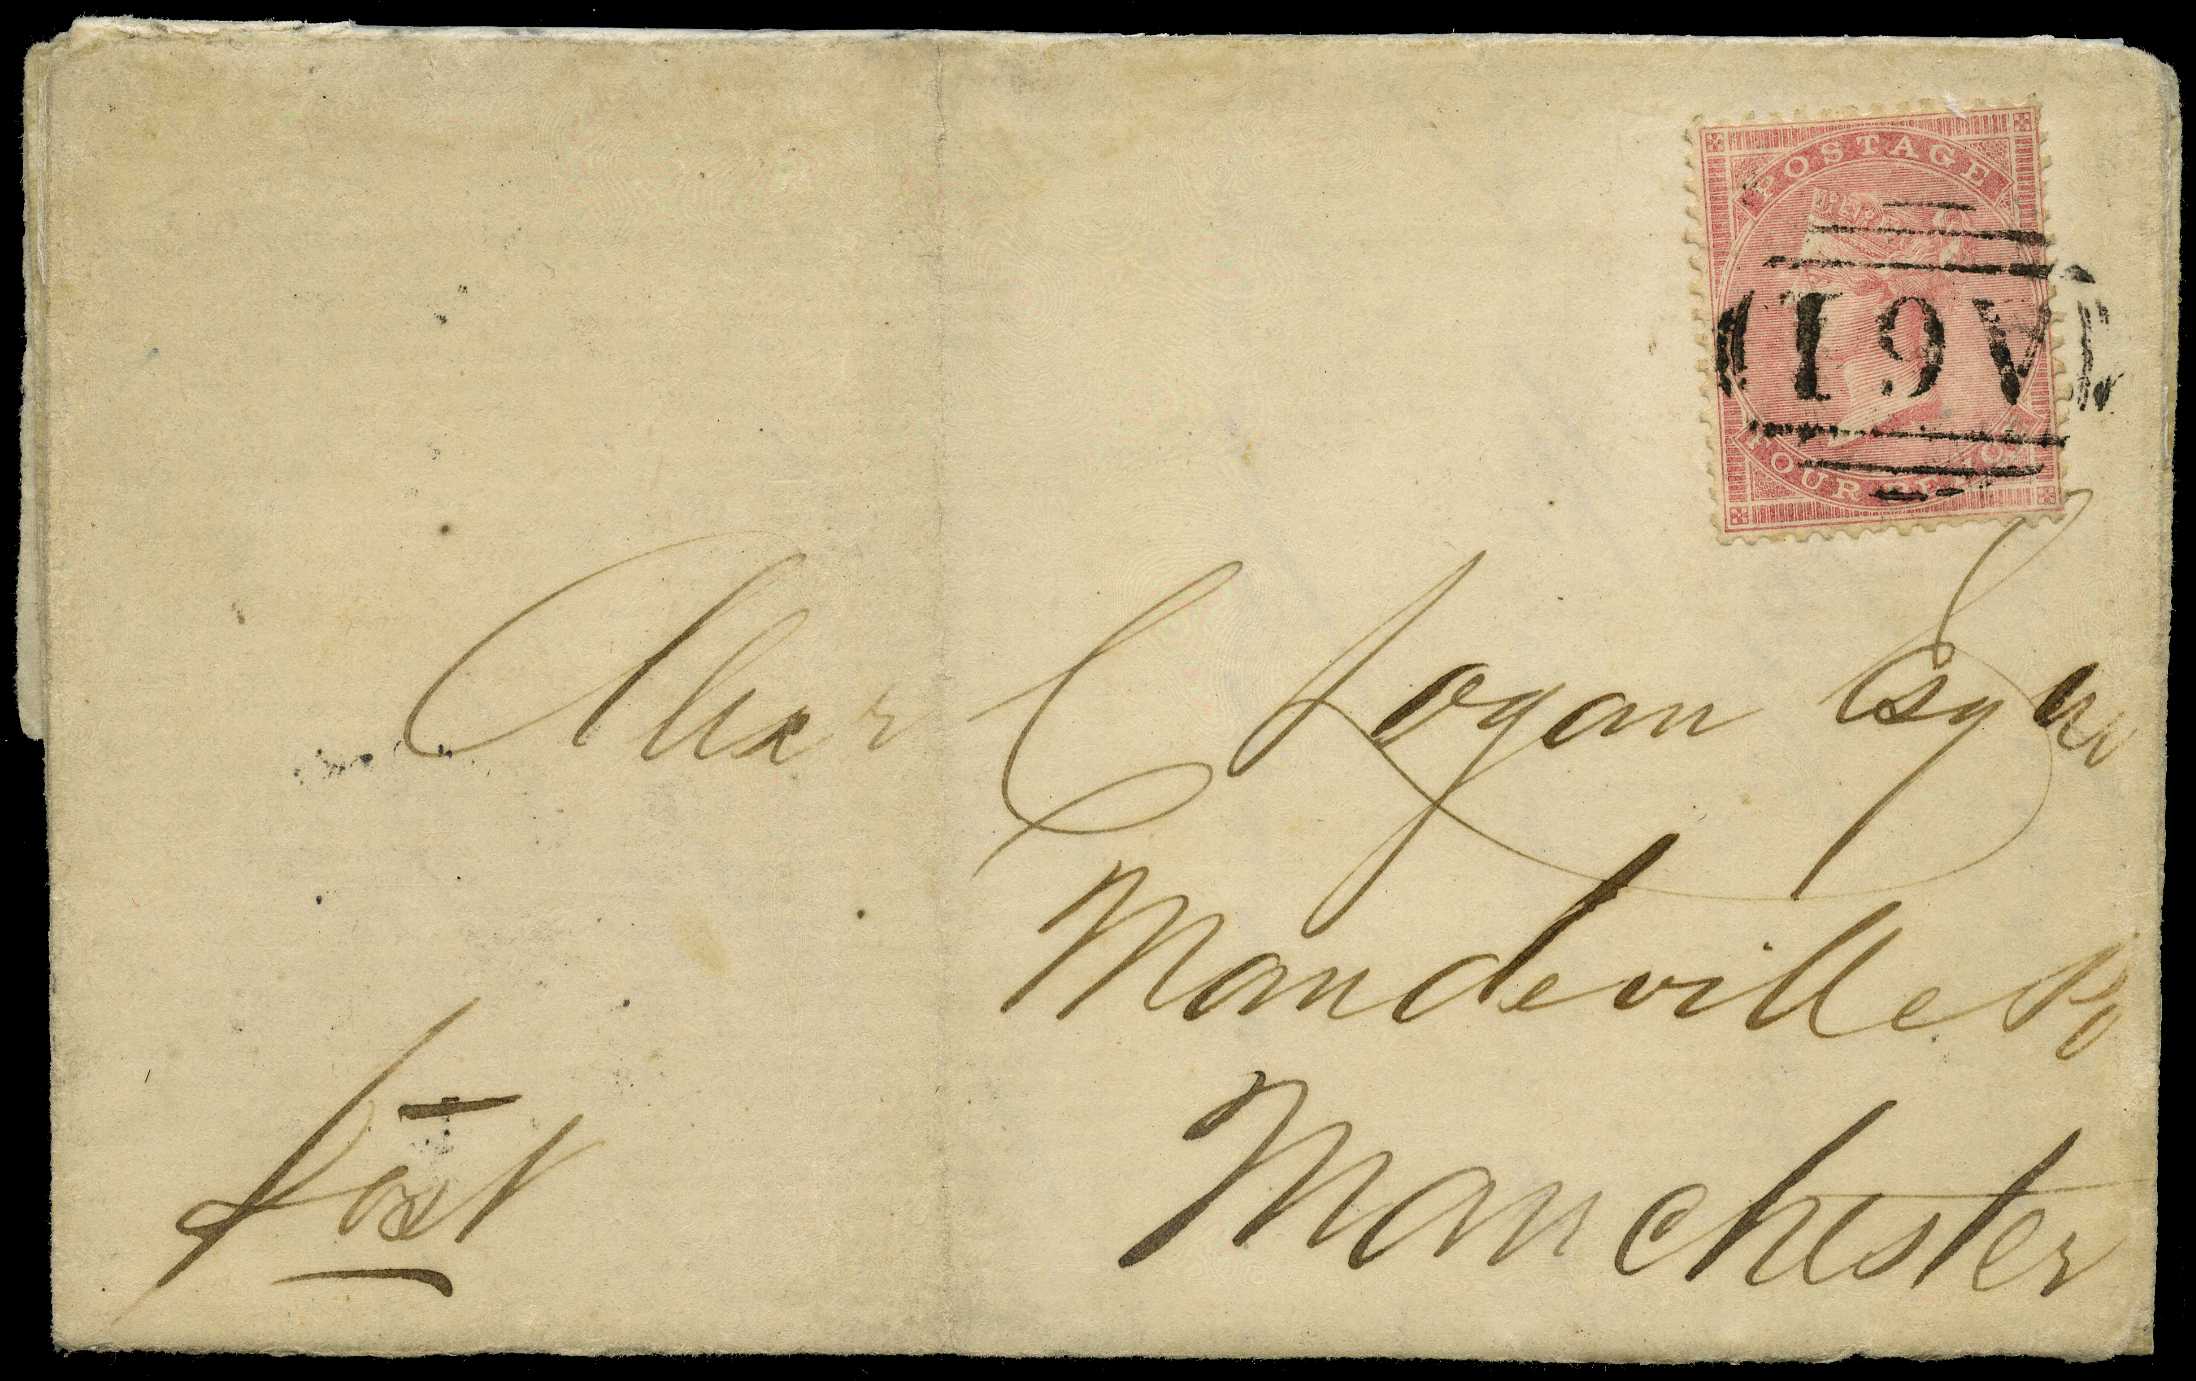 POSTAGE
A61
FOUR PENCE
Alexr C Logan Esqr
Mandeville Po
Manchester
Post